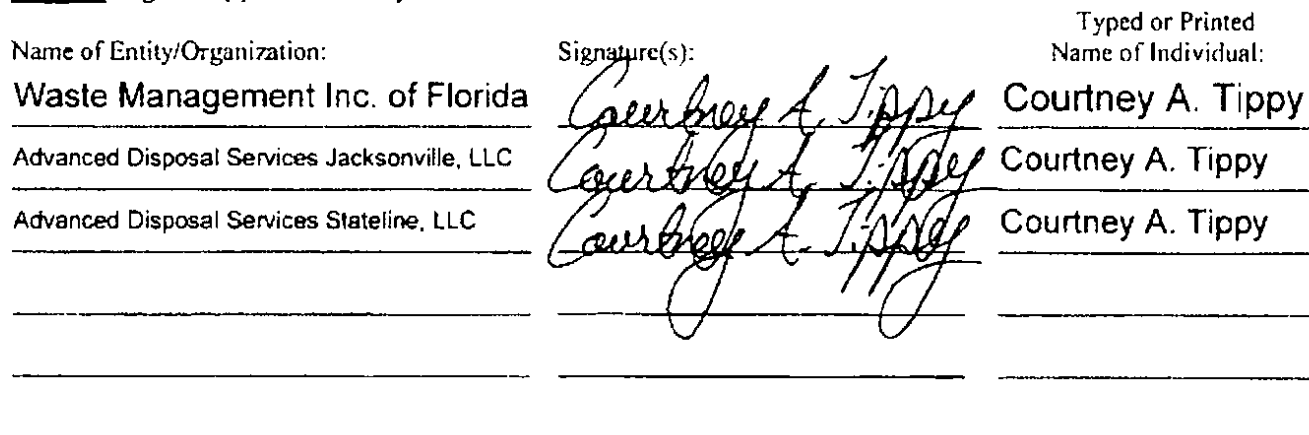 Typed or Printed
Name of Entity/Organization: Signature(s): Name of Individual:
Waste Management Inc. of Florida Courtney A. Tippy Courtney A. Tippy
Advanced Disposal Services Jacksonville, LLC Courtney A. Tippy Courtney A. Tippy
Advanced Disposal Services Stateline, LLC Courtney A. Tippy Courtney A. Tippy